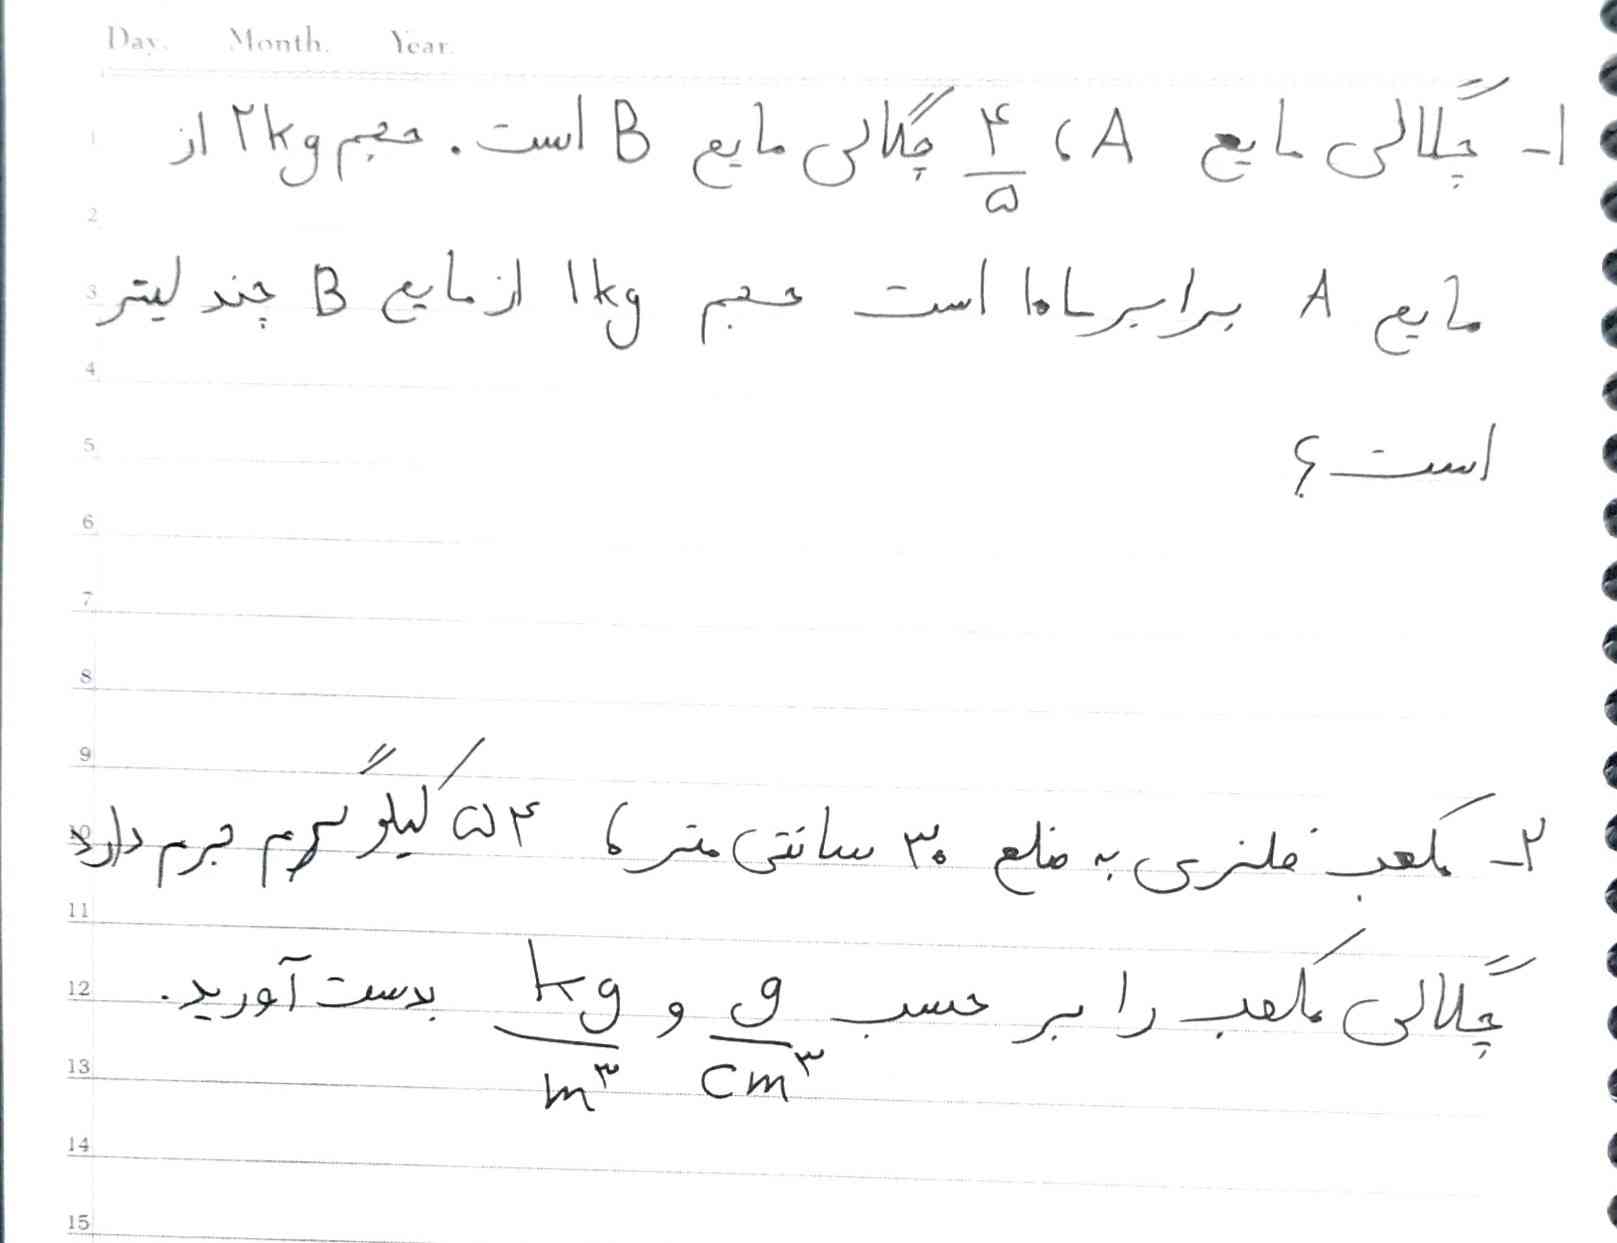 Day. Month. Year.
۱- چگالی مایع A، ۴/۵ چگالی مایع B است. حجم ۲kg از
مایع A برابر با ۱۰ است حجم ۱kg از مایع B چند لیتر
است؟
۲- مکعب فلزی به ضلع ۳۰ سانتی متر، ۵۴ کیلوگرم جرم دارد
چگالی مکعب را بر حسب g/cm۳ و kg/m۳ بدست آورید.
1
2
3
4
5
6
7
8
9
10
11
12
13
14
15